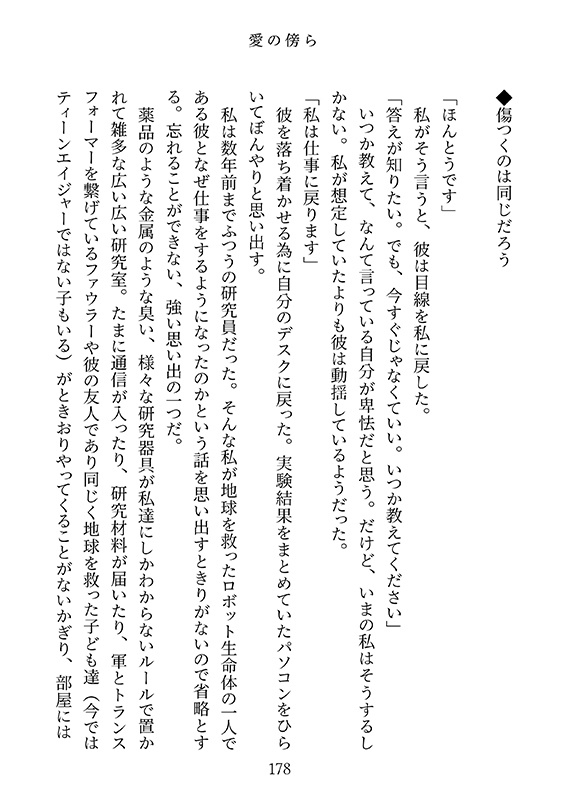 愛の傍ら
◆傷つくのは同じだろう
「ほんとうです」
私がそう言うと、彼は目線を私に戻した。
「答えが知りたい。でも、今すぐじゃなくていい。いつか教えてください」
いつか教えて、なんて言っている自分が卑怯だと思う。だけど、いまの私はそうするし
かない。私が想定していたよりも彼は動揺しているようだった。
「私は仕事に戻ります」
彼を落ち着かせる為に自分のデスクに戻った。実験結果をまとめていたパソコンをひら
いてぼんやりと思い出す。
私は数年前までふつうの研究員だった。そんな私が地球を救ったロボット生命体の一人で
ある彼となぜ仕事をするようになったのかという話を思い出すときりがないので省略とす
る。忘れることができない、強い思い出の一つだ。
薬品のような金属のような臭い、様々な研究器具が私達にしかわからないルールで置か
れて雑多な広い広い研究室。たまに通信が入ったり、研究材料が届いたり、軍とトランス
フォーマーを繋げているファウラーや彼の友人であり同じく地球を救った子ども達（今では
ティーンエイジャーではない子もいる）がときおりやってくることがないかぎり、部屋には
178